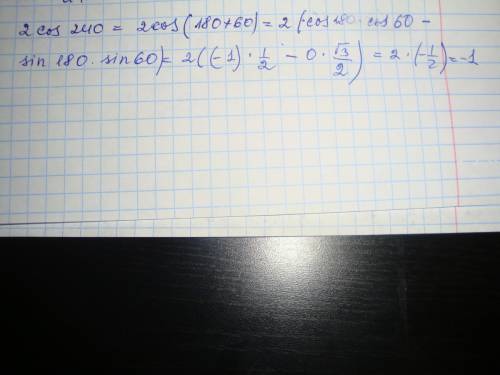 2 cos 240 = 2cos(180+60) = 2(cos 180 · cos 60 -
sin 180 · sin 60) = 2((-1) · 1/2 - 0 · √3/2) = 2 · (-1/2) = -1